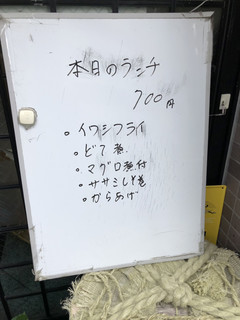 本日のランチ
700円
。イワシフライ
。どて煮
。マグロ煮付
。ササミしそ巻
。からあげ